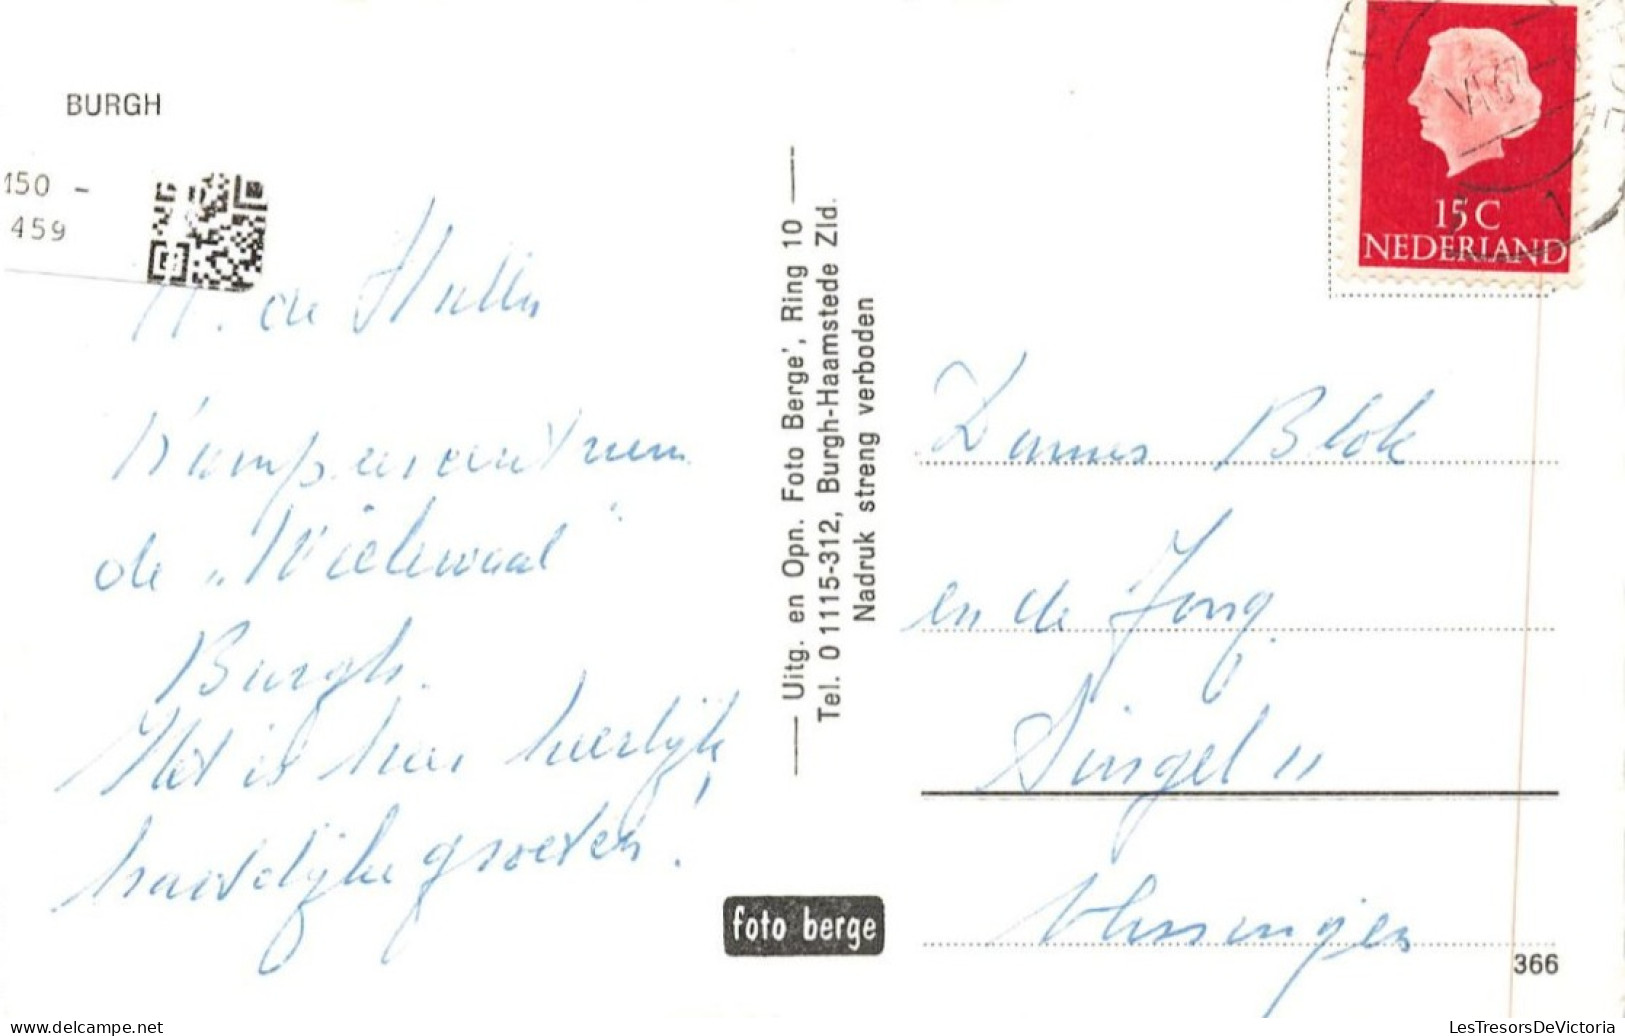 BURGH
150 -
459
de
Kampeercentrum
de „Wielewaal"
Burgh.
Het is hier heerlijk!
hartelijke groeten!
Uitg. en Opn. Foto Berge', Ring 10
Tel. 0 1115-312, Burgh-Haamstede Zld.
Nadruk streng verboden
foto berge
15 C
NEDERLAND
Dames Blok
en de Jong.
Singel 11
Vlissingen
366
www.delcampe.net
LesTresorsDeVictoria